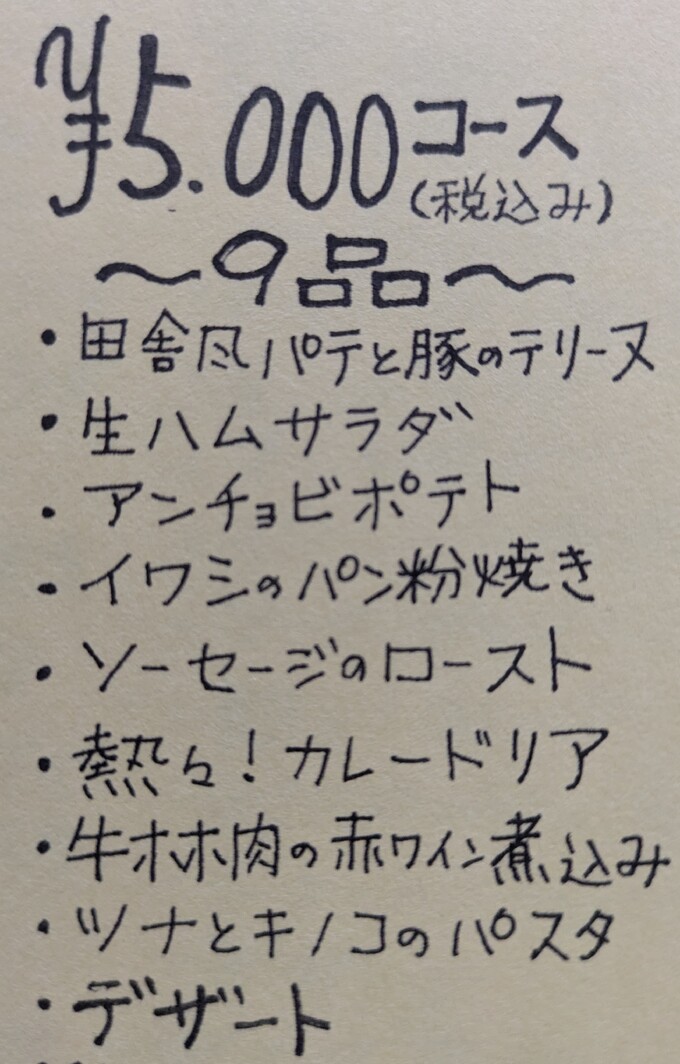 ¥5.000コース
(税込み)
〜9品〜
・田舎風パテと豚のテリーヌ
・生ハムサラダ
・アンチョビポテト
・イワシのパン粉焼き
・ソーセージのロースト
・熱々!カレードリア
・牛ホホ肉の赤ワイン煮込み
・ツナとキノコのパスタ
・デザート